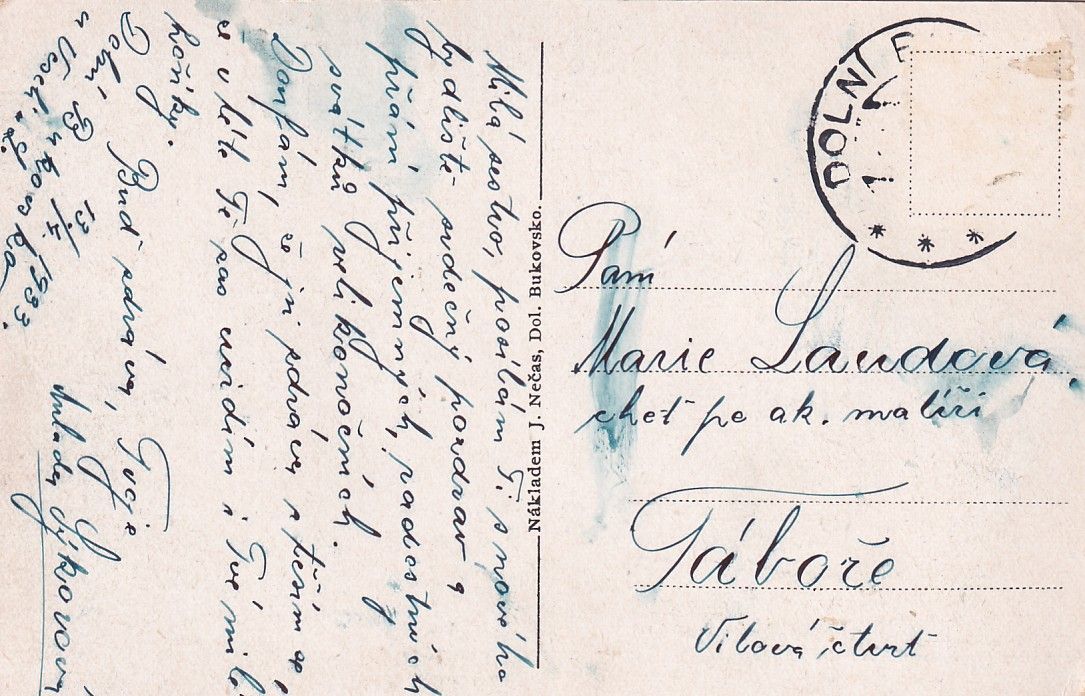 Milá sestro, posílám Ti s nového
bydliště srdečný pozdrav a
přání příjemných, radostných
svátků velikonočních.
Doufám, že jsi zdráva a těším se,
že v létě Tě zas uvidím i Tvé milé
hošíky.
Buď zdráva, Tvoje
Sýkorová
Dolní Bukovsko
u Veselí n. L.
13/4 1933.
Nákladem J. Nečas, Dol. Bukovsko.
DOLNÍ B
Paní
Marie Laudová,
choť po ak. malíři
Táboře
Vilová čtvrt